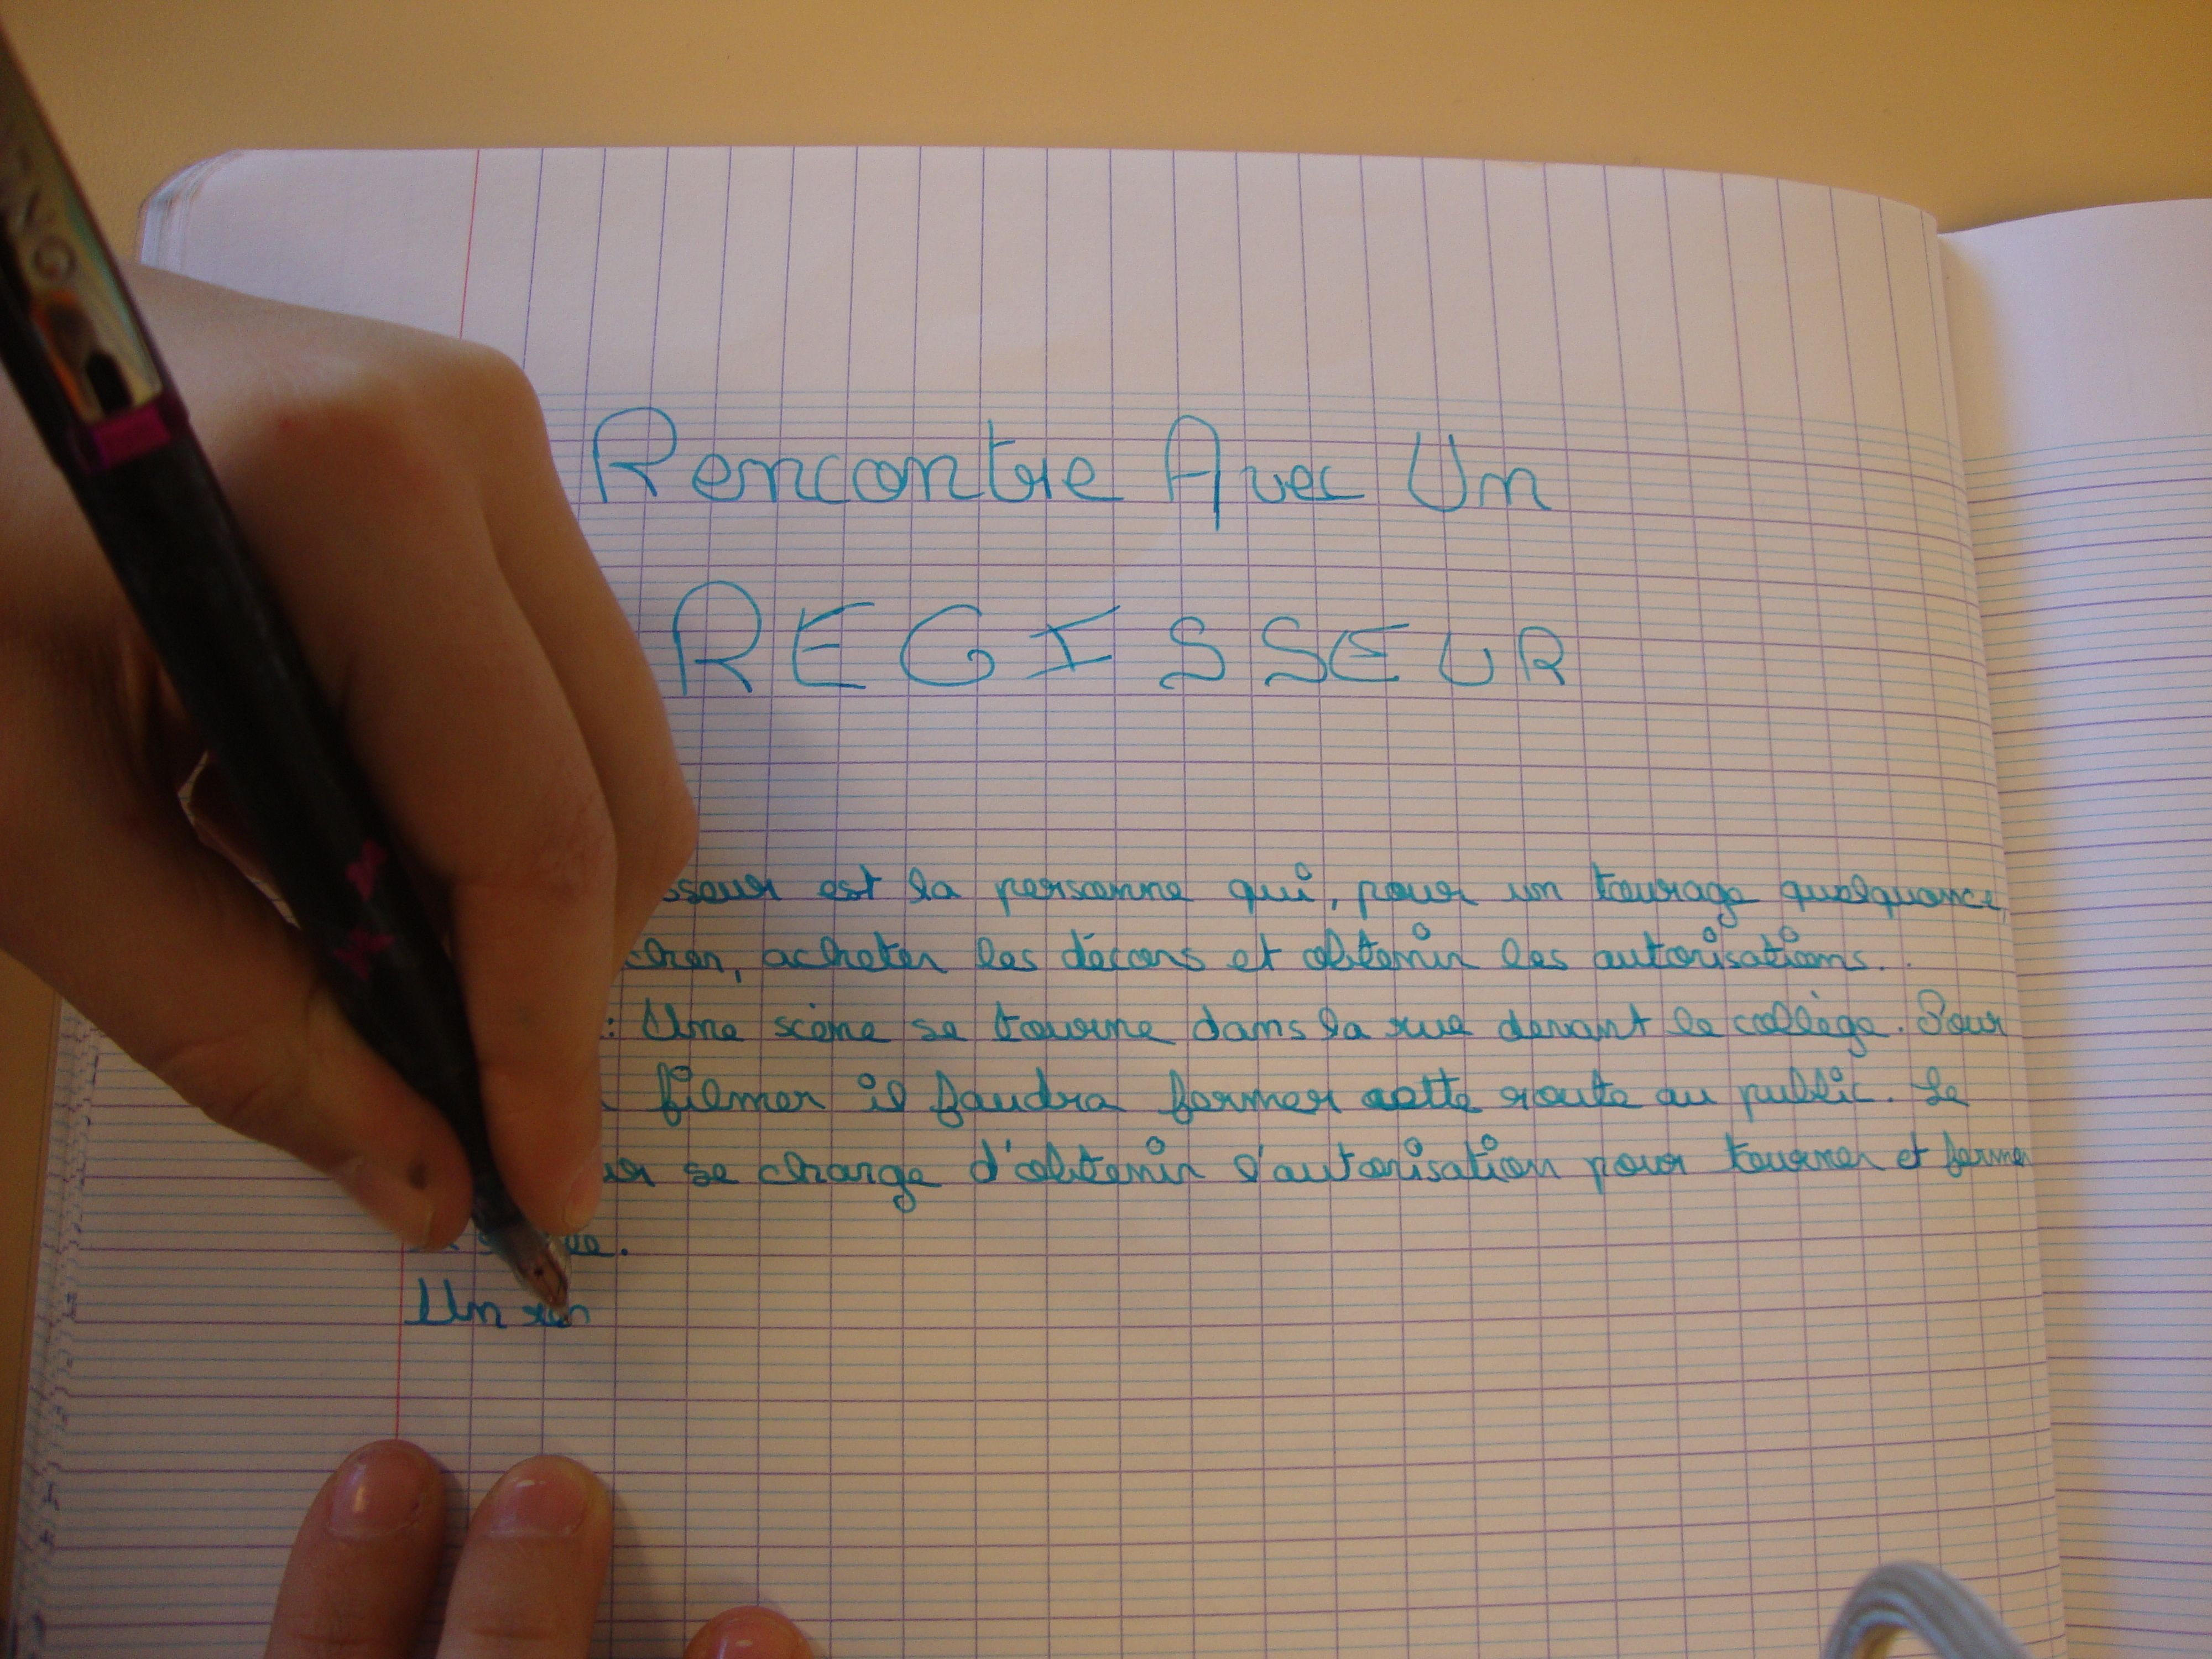 Rencontre Avec Un
REGISSEUR
sseur est la personne qui, pour un tournage quelquonce,
cher, acheter les décors et obtenir les autorisations.
: Une scène se tourne dans la rue devant le collège. Pour
filmer il faudra fermer cette route au public. Le
ur se charge d'obtenir l'autorisation pour tourner et fermer
Un